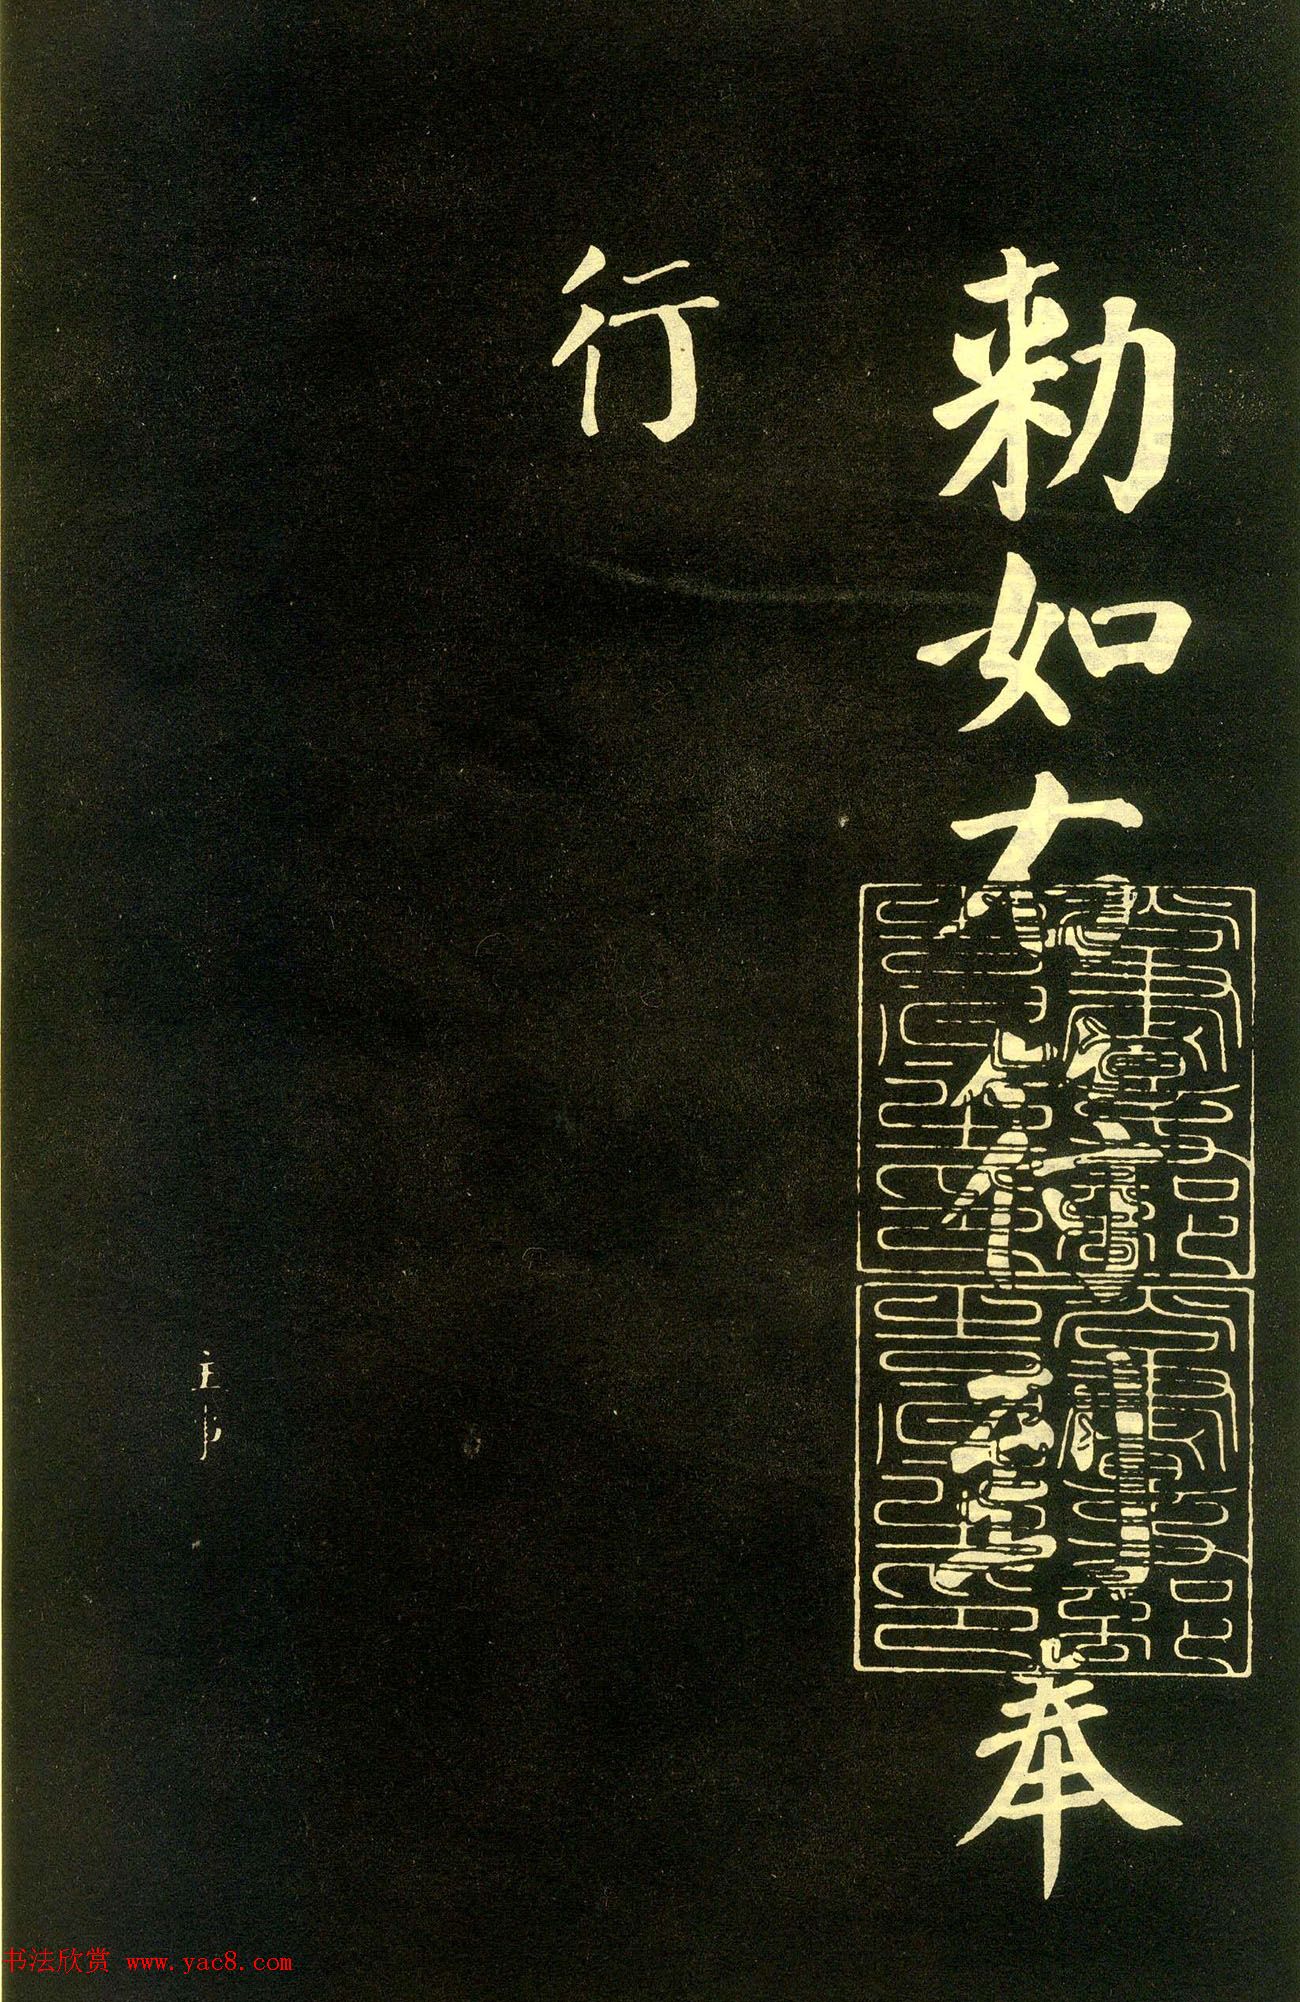 勑如右符到奉
行
主事
书法欣赏 www.yac8.com